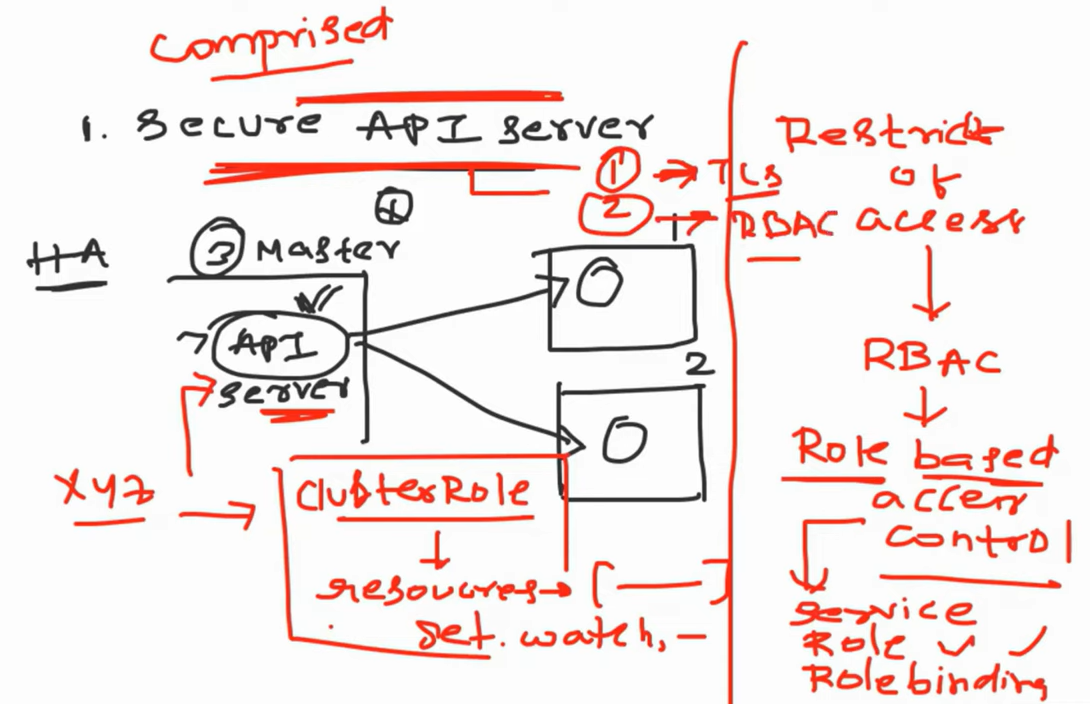 Comprised
1. Secure API Server
① → TLS
② → RBAC
HA
③ Master
API
server
1
2
xyz
ClusterRole
resources → [ — ]
get. watch, —
Restrict
of
access
RBAC
Role based
access
control
service
Role ✓ ✓
Rolebinding